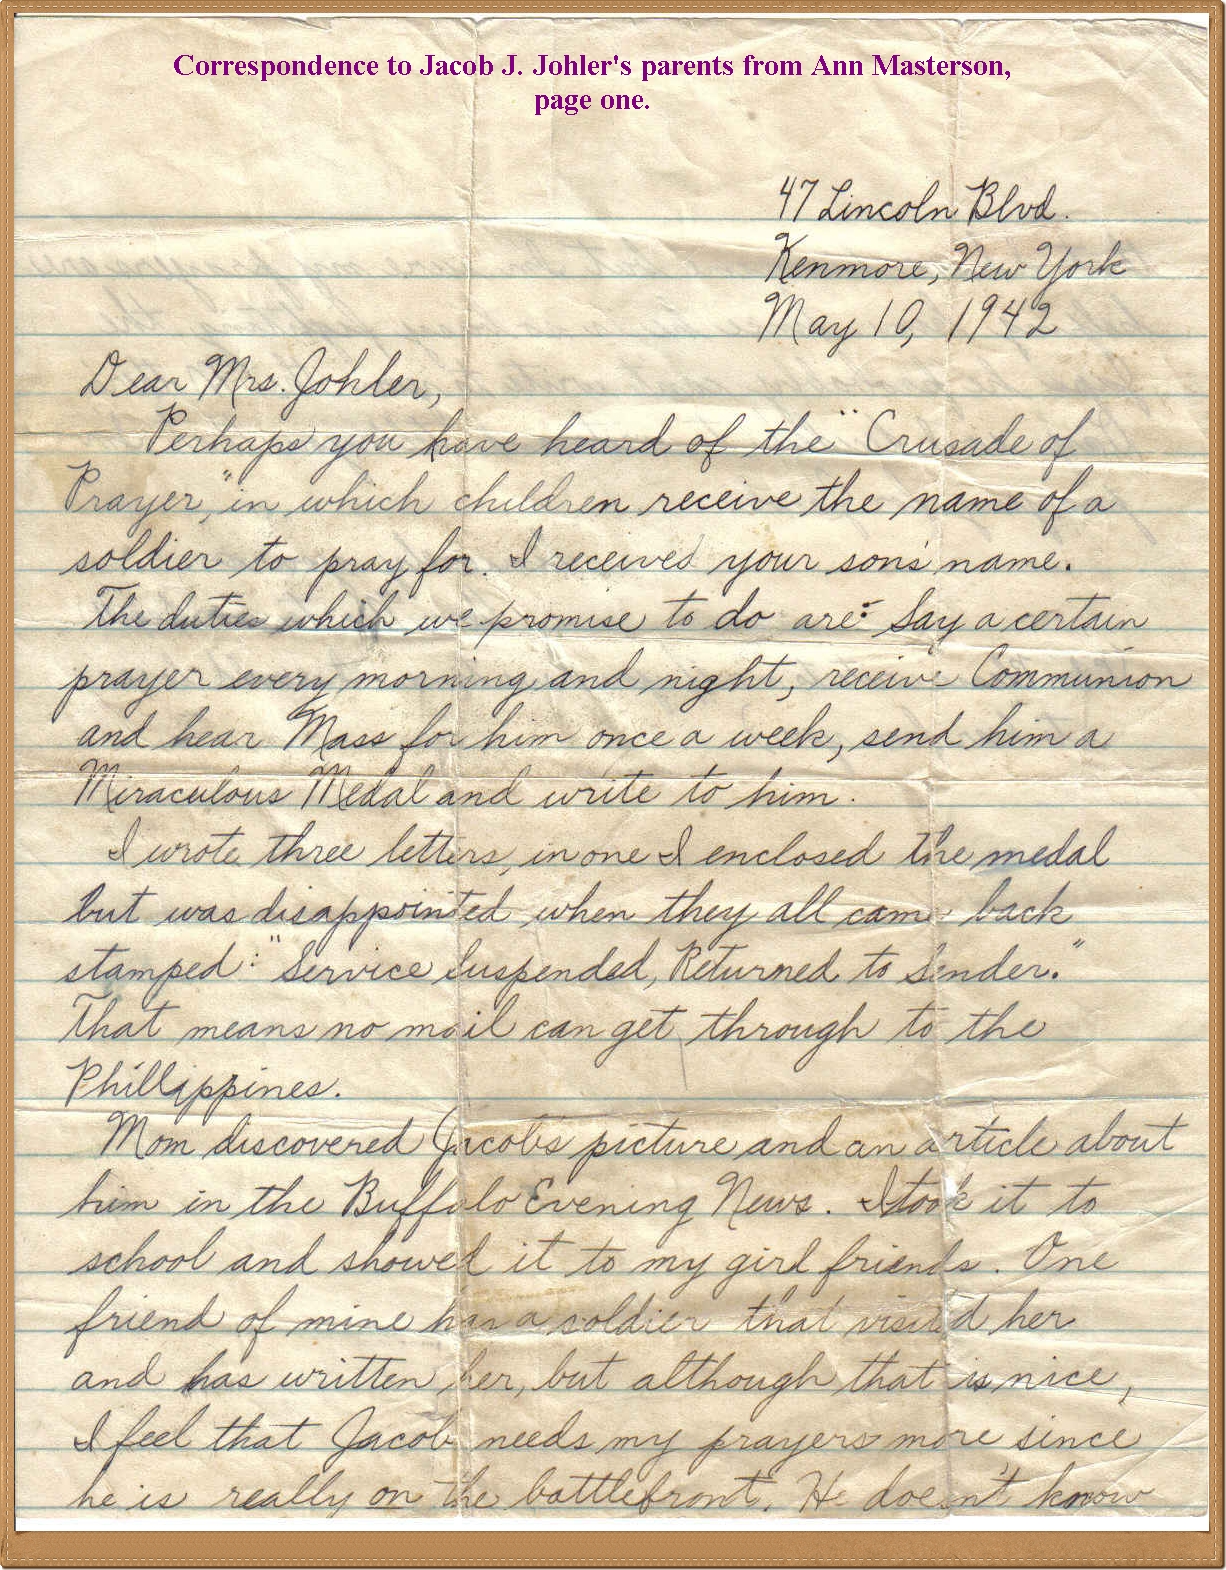 Correspondence to Jacob J. Johler's parents from Ann Masterson,
page one.
47 Lincoln Blvd.
Kenmore, New York
May 10, 1942
Dear Mrs. Johler,
Perhaps you have heard of the "Crusade of
Prayer", in which children receive the name of a
soldier to pray for. I received your son's name.
The duties which we promise to do are: Say a certain
prayer every morning and night, receive Communion
and hear Mass for him once a week, send him a
Miraculous Medal and write to him.
I wrote three letters, in one I enclosed the medal
but was disappointed when they all came back
stamped: "Service Suspended, Returned to Sender."
That means no mail can get through to the
Phillippines.
Mom discovered Jacob's picture and an article about
him in the Buffalo Evening News. I took it to
school and showed it to my girl friends. One
friend of mine has a soldier that visited her
and has written her, but although that is nice,
I feel that Jacob needs my prayers more since
he is really on the battlefront. He doesn't know